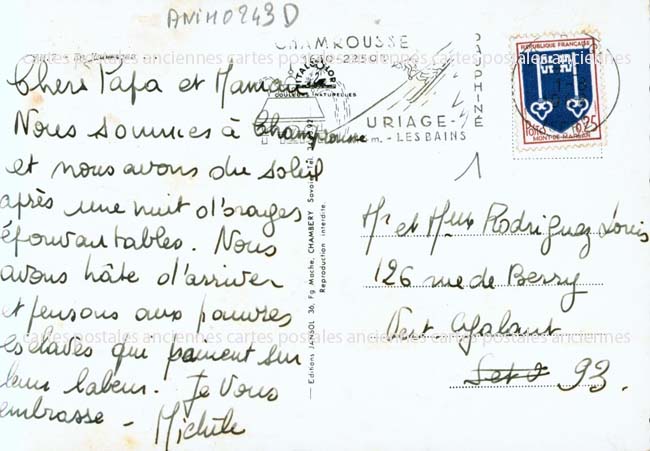 ANIH0243D
CHAMROUSSE
1650-2250 m
DAUPHINÉ
URIAGE-
m. -LES BAINS
REPUBLIQUE FRANÇAISE
POSTES
0,25
MONT-DE-MARSAN
VITACOLOR
COULEURS NATURELLES
cartes postales anciennes cartes postales anciennes cartes postales anciennes
Chers Papa et Maman
Nous sommes à Chamrousse
et nous avons du soleil
après une nuit d'orages
épouvantables. Nous
avons hâte d'arriver
et pensons aux pauvres
esclaves qui peinent sur
leur labeur. Je vous
embrasse - Michèle
Editions JANSOL 30, Fg Mache, CHAMBERY Savoie Tél.
Reproduction interdite.
1
Mr et Mme Rodriguez Louis
126 rue de Berry
Vert Galant
93.
cartes postales anciennes cartes postales anciennes cartes postales anciennes